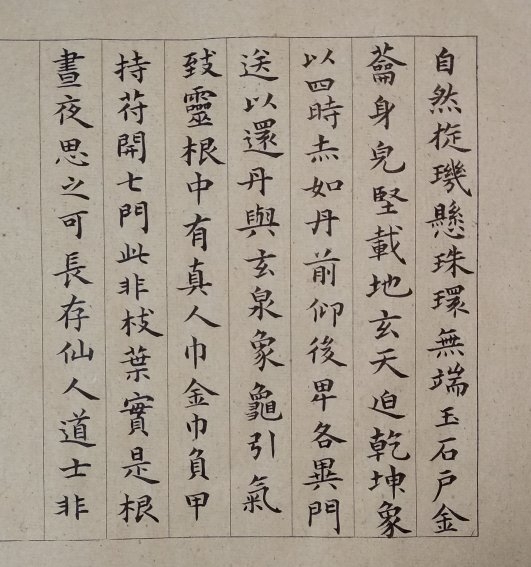 自然琁璣懸珠環無端玉石戶金
蘥身皃堅載地玄天迫乾坤象
以四時赤如丹前仰後卑各異門
送以還丹與玄泉象龜引氣
致靈根中有真人巾金巾負甲
持苻開七門此非枝葉實是根
晝夜思之可長存仙人道士非